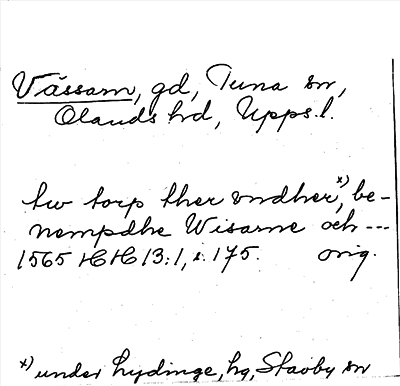 Vässam, gd, Tuna sn,
Olands hd, Upps. l.
tw torp ther vndher x), be-
nempdhe Wisame och ---
1565 HH 13:1, s. 175. orig.
x) under Lydinge, hg, Stavby sn